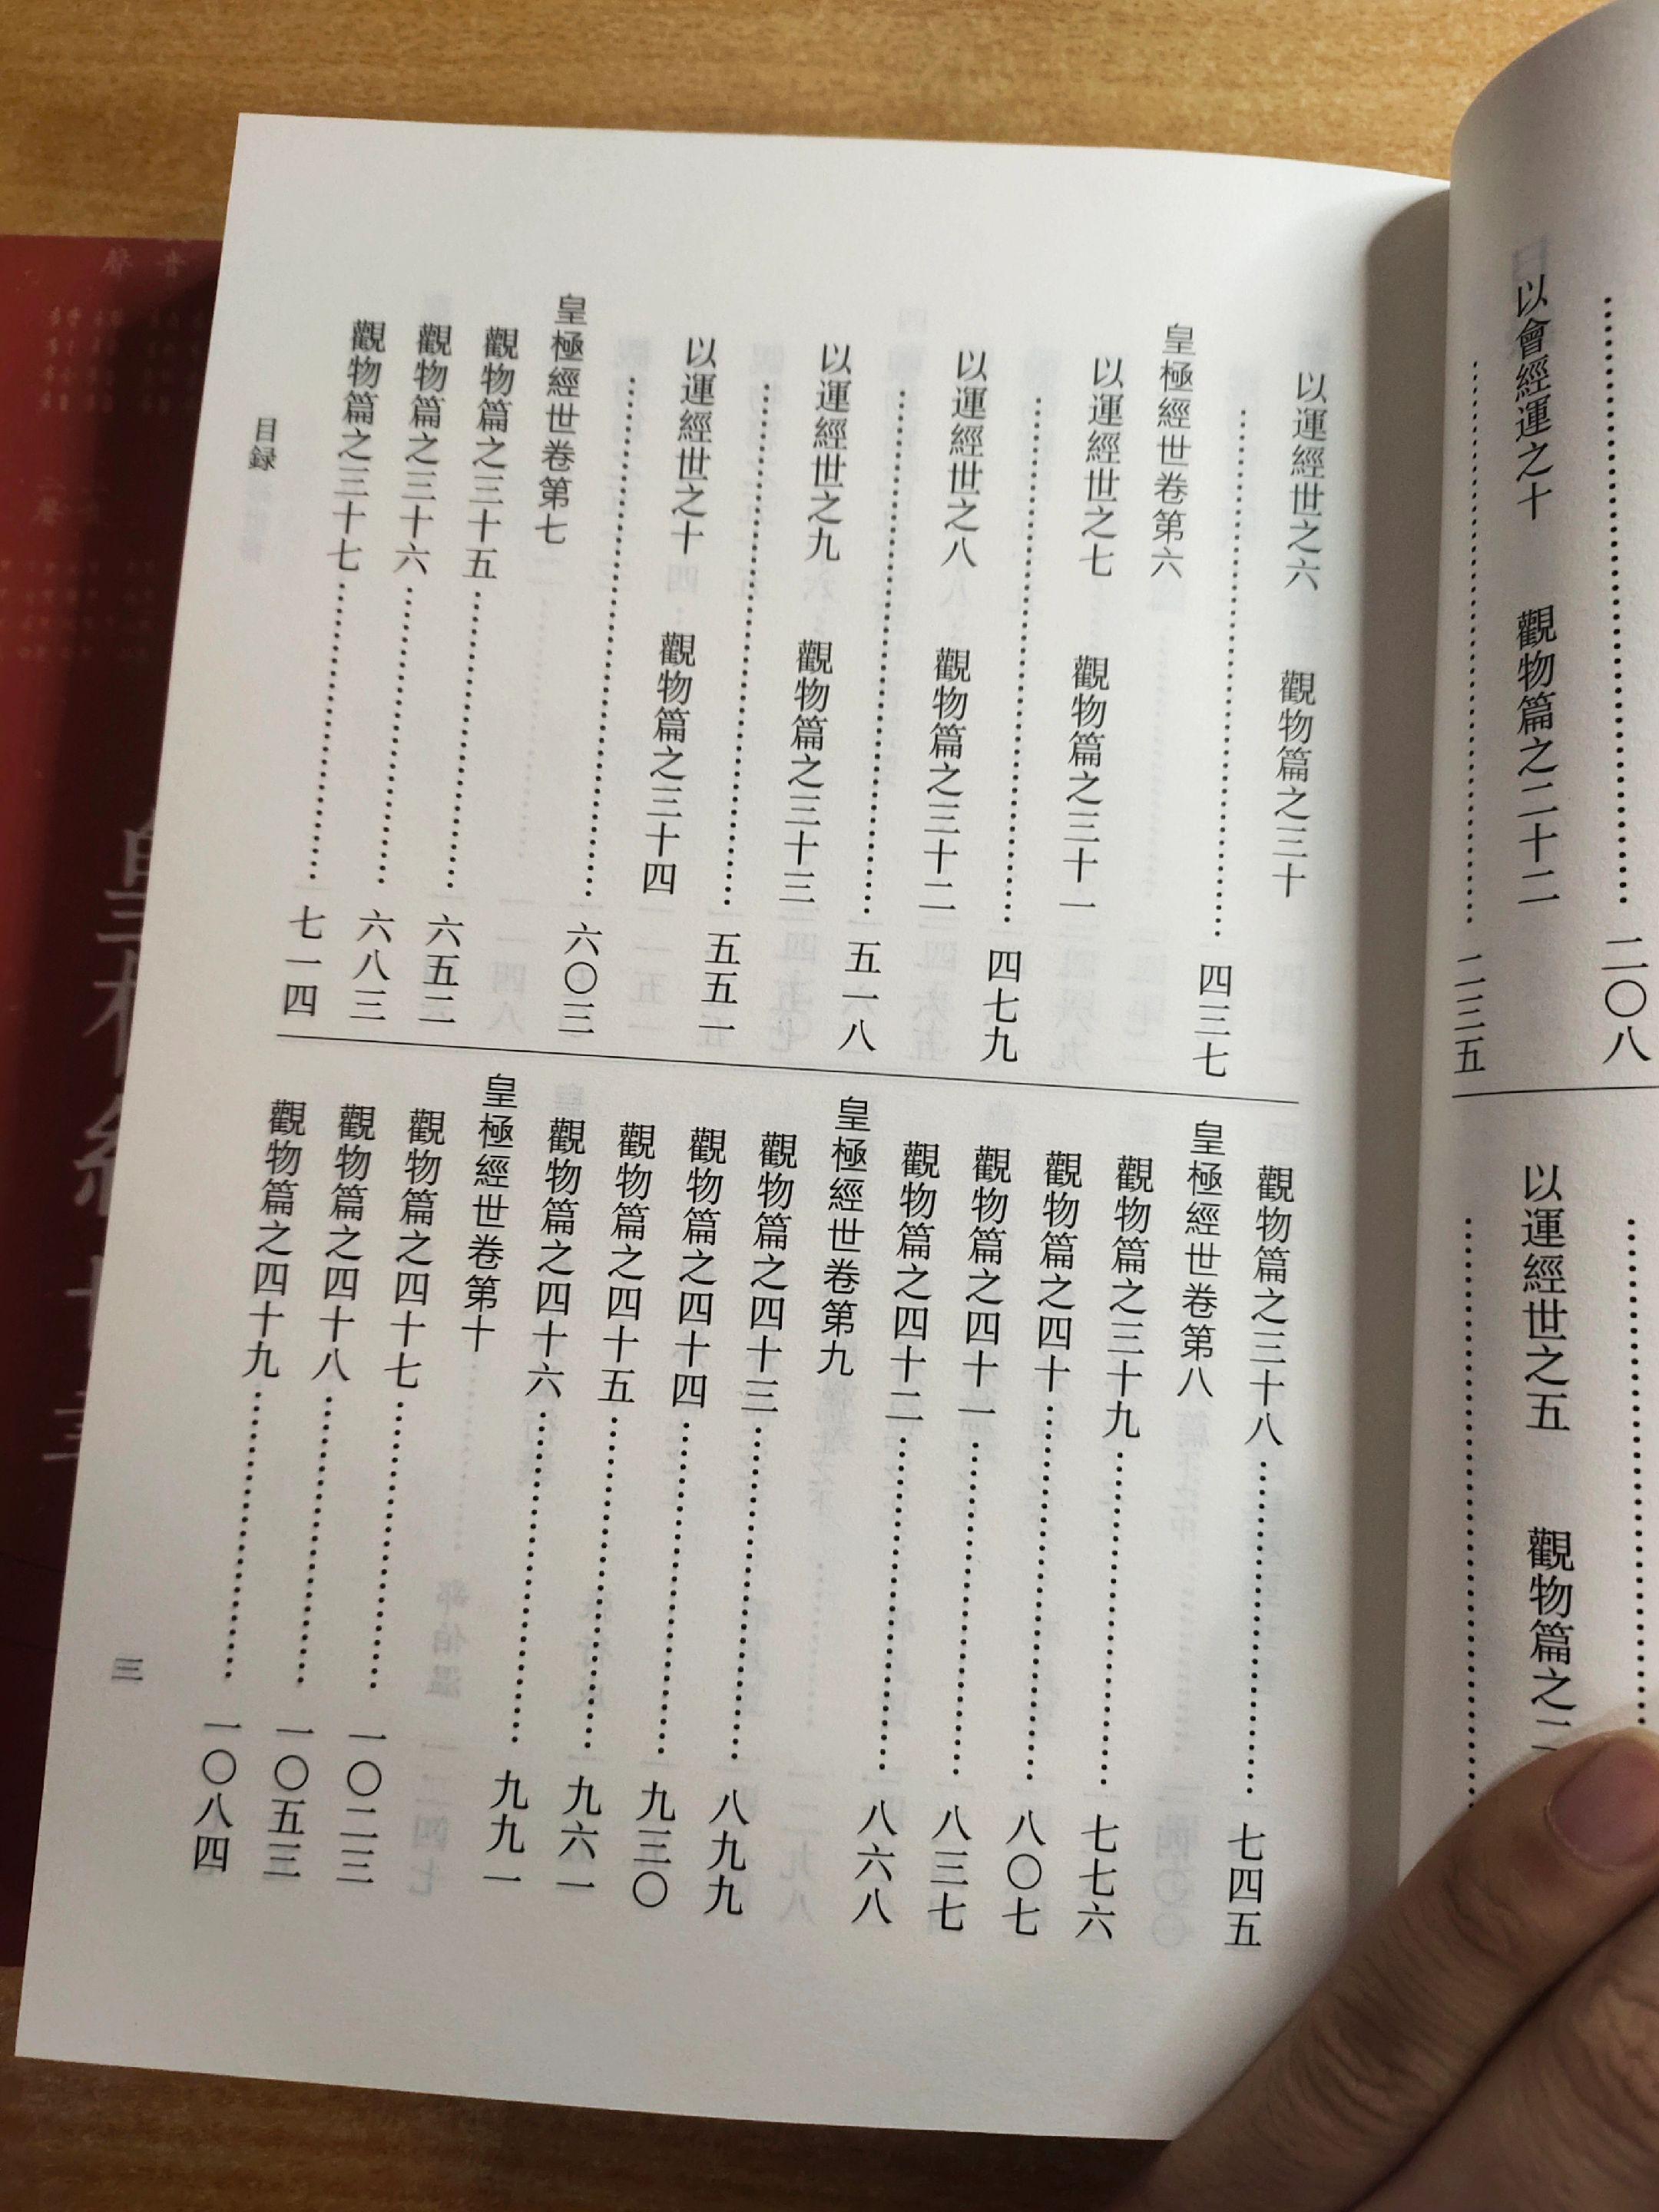 二〇八
以會經運之十　觀物篇之二十二
二三五
以運經世之五　觀物篇之二
以運經世之六　觀物篇之三十
……四三七
皇極經世卷第六
以運經世之七　觀物篇之三十一
……四七九
以運經世之八　觀物篇之三十二
……五一八
以運經世之九　觀物篇之三十三
……五五一
以運經世之十　觀物篇之三十四
……六〇三
皇極經世卷第七
觀物篇之三十五……六五二
觀物篇之三十六……六八三
觀物篇之三十七……七一四
觀物篇之三十八……七四五
皇極經世卷第八
觀物篇之三十九……七七六
觀物篇之四十……八〇七
觀物篇之四十一……八三七
觀物篇之四十二……八六八
皇極經世卷第九
觀物篇之四十三……八九九
觀物篇之四十四……九三〇
觀物篇之四十五……九六一
觀物篇之四十六……九九一
皇極經世卷第十
觀物篇之四十七……一〇二三
觀物篇之四十八……一〇五三
觀物篇之四十九……一〇八四
目録
三
聲音